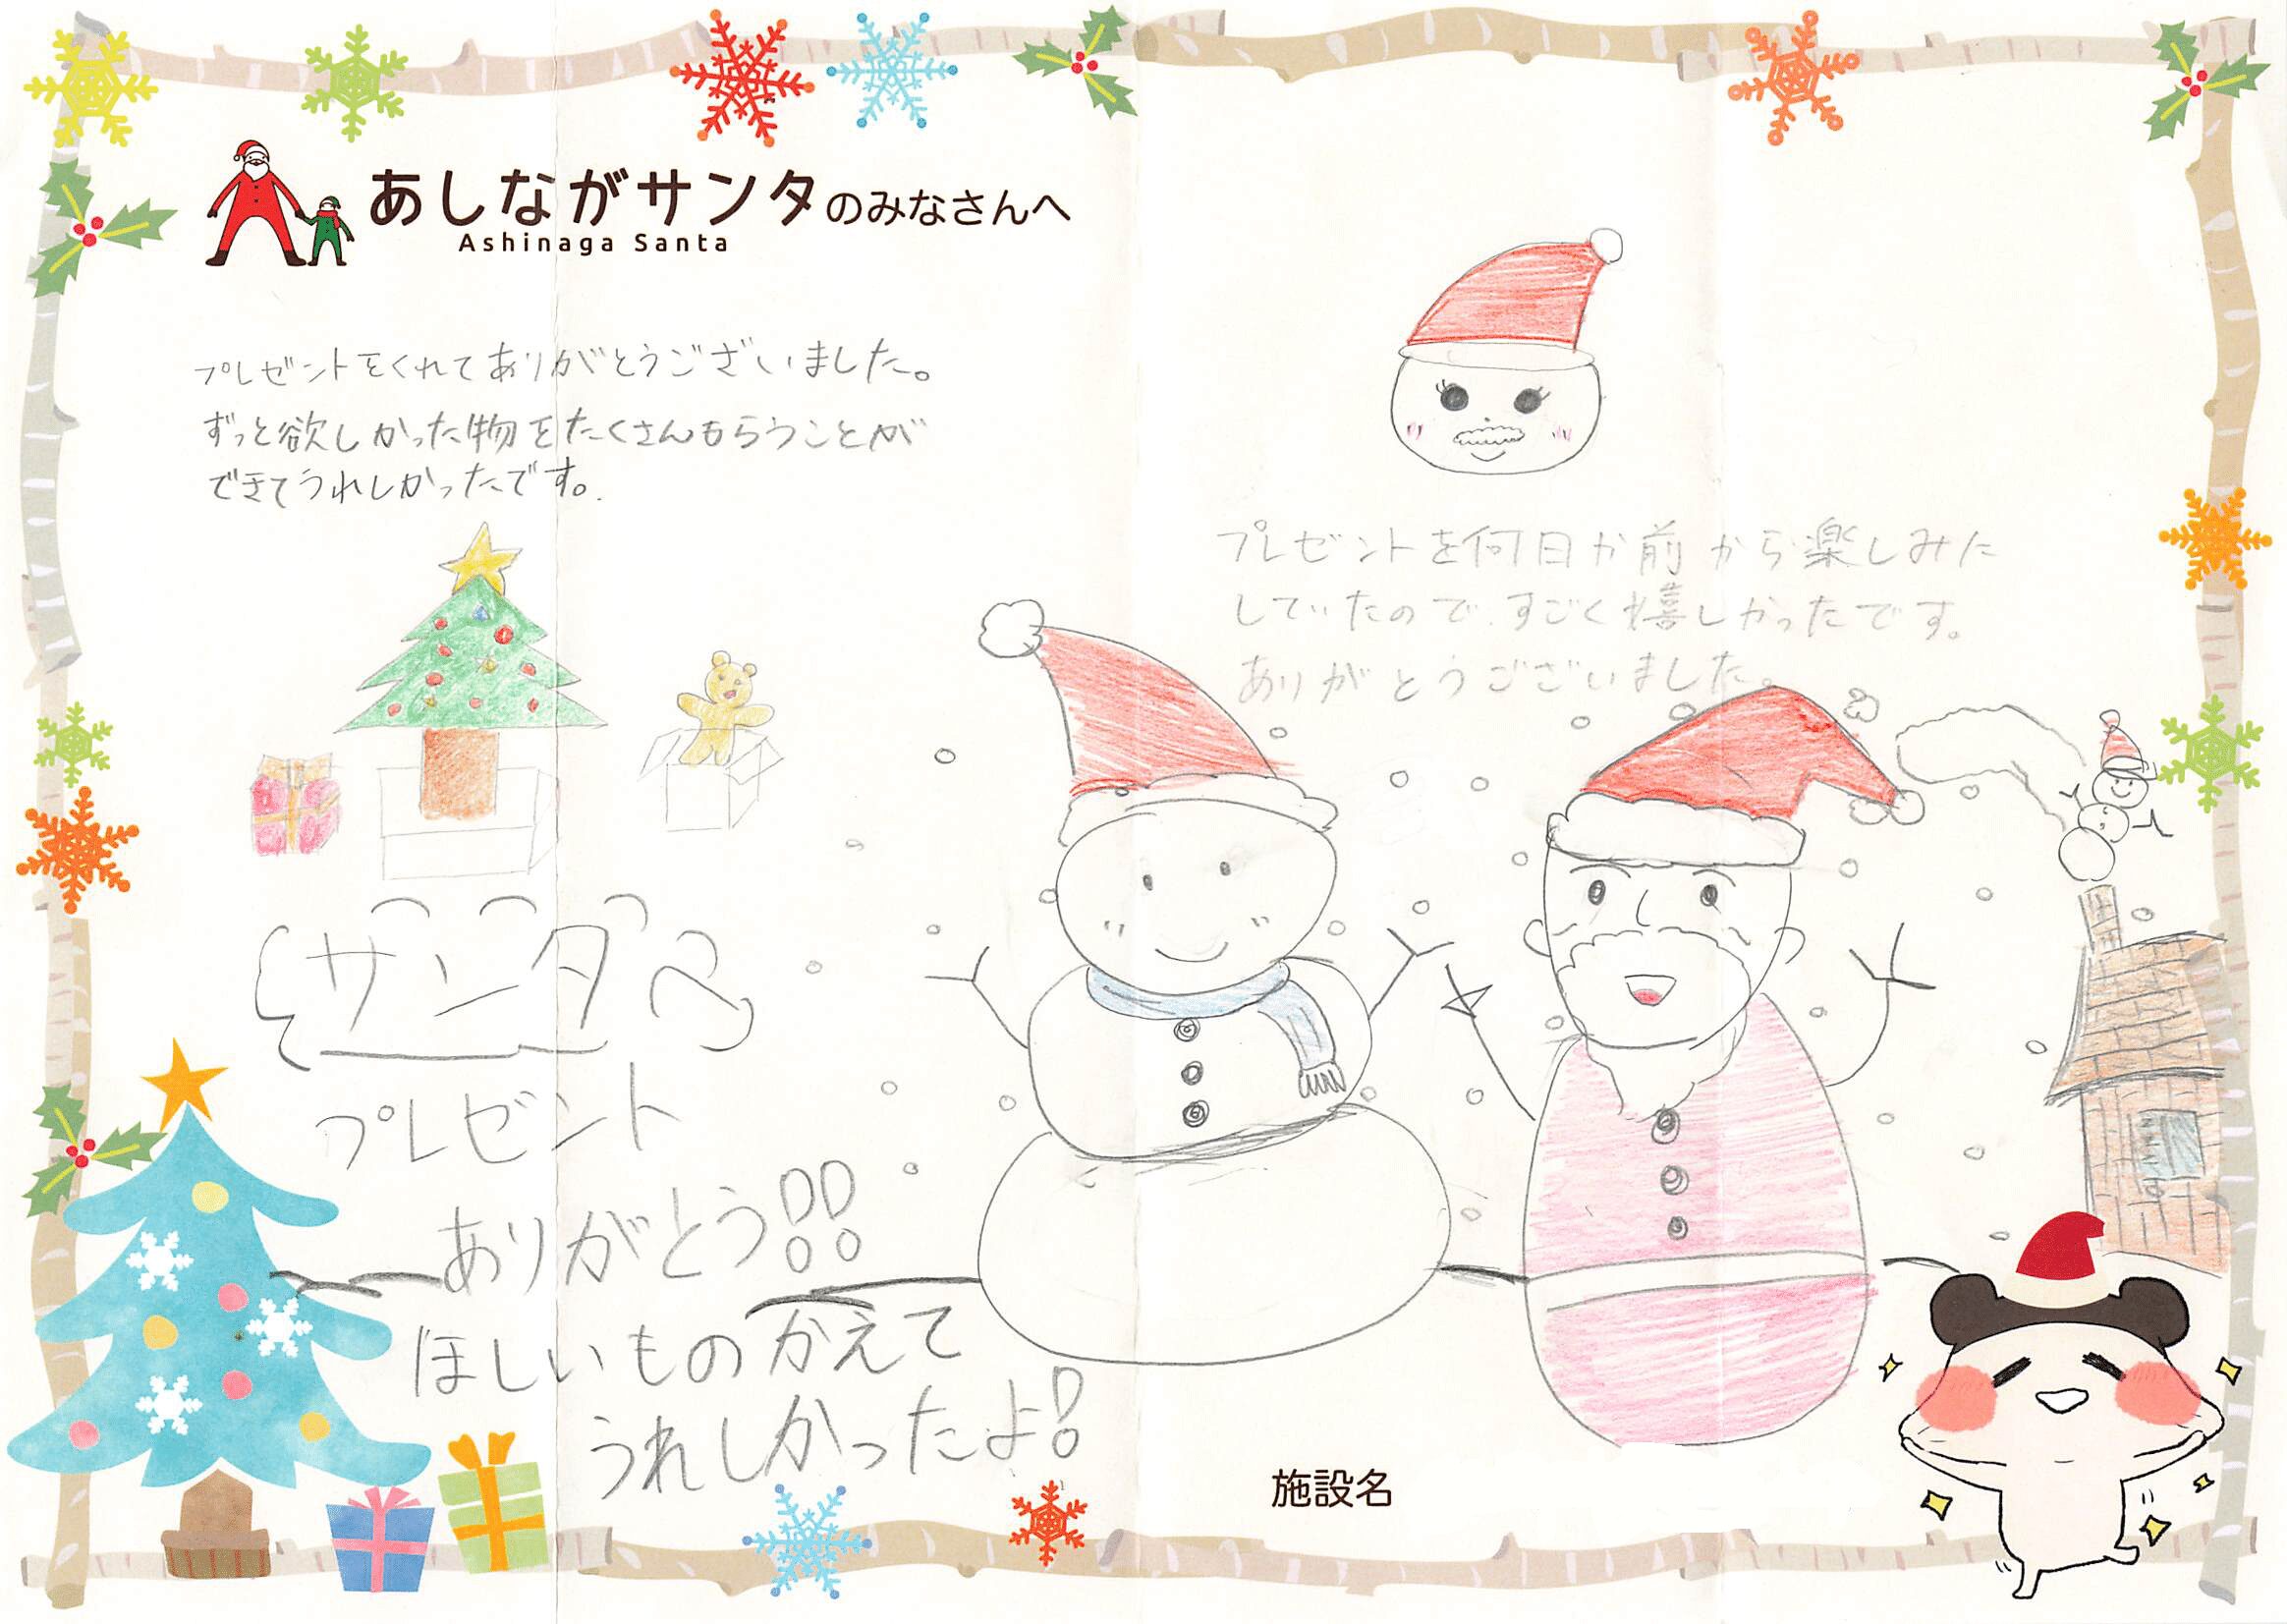 あしながサンタのみなさんへ
Ashinaga Santa
プレゼントをくれてありがとうございました。
ずっと欲しかった物をたくさんもらうことが
できてうれしかったです。
サンタへ
プレゼント
ありがとう!!
ほしいものかえて
うれしかったよ!
プレゼントを何日か前から楽しみに
していたので、すごく嬉しかったです。
ありがとうございました。
施設名